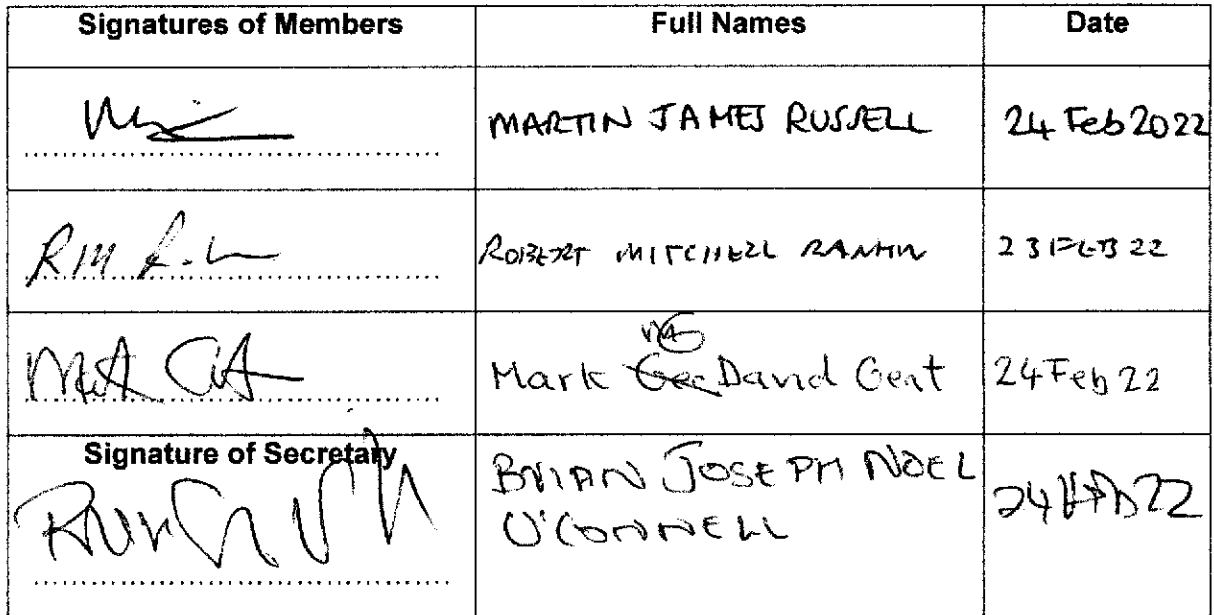 Signatures of Members Full Names Date
MARTIN JAMES RUSSELL 24 Feb 2022
RM ROBERT MITCHELL RANKIN 23 FEB 22
Mark David Gent 24 Feb 22
Signature of Secretary
BRIAN JOSEPH NOEL
O'CONNELL
24 FEB 22